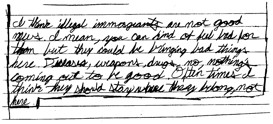 I think illegal immargrants are not good
news. I mean, you can kind of feel bad for
them but they could be bringing bad things
here. Diseases, weapons, drugs, no, nothing's
coming out to be good. Often times I
think they should stay where they belong, not
here